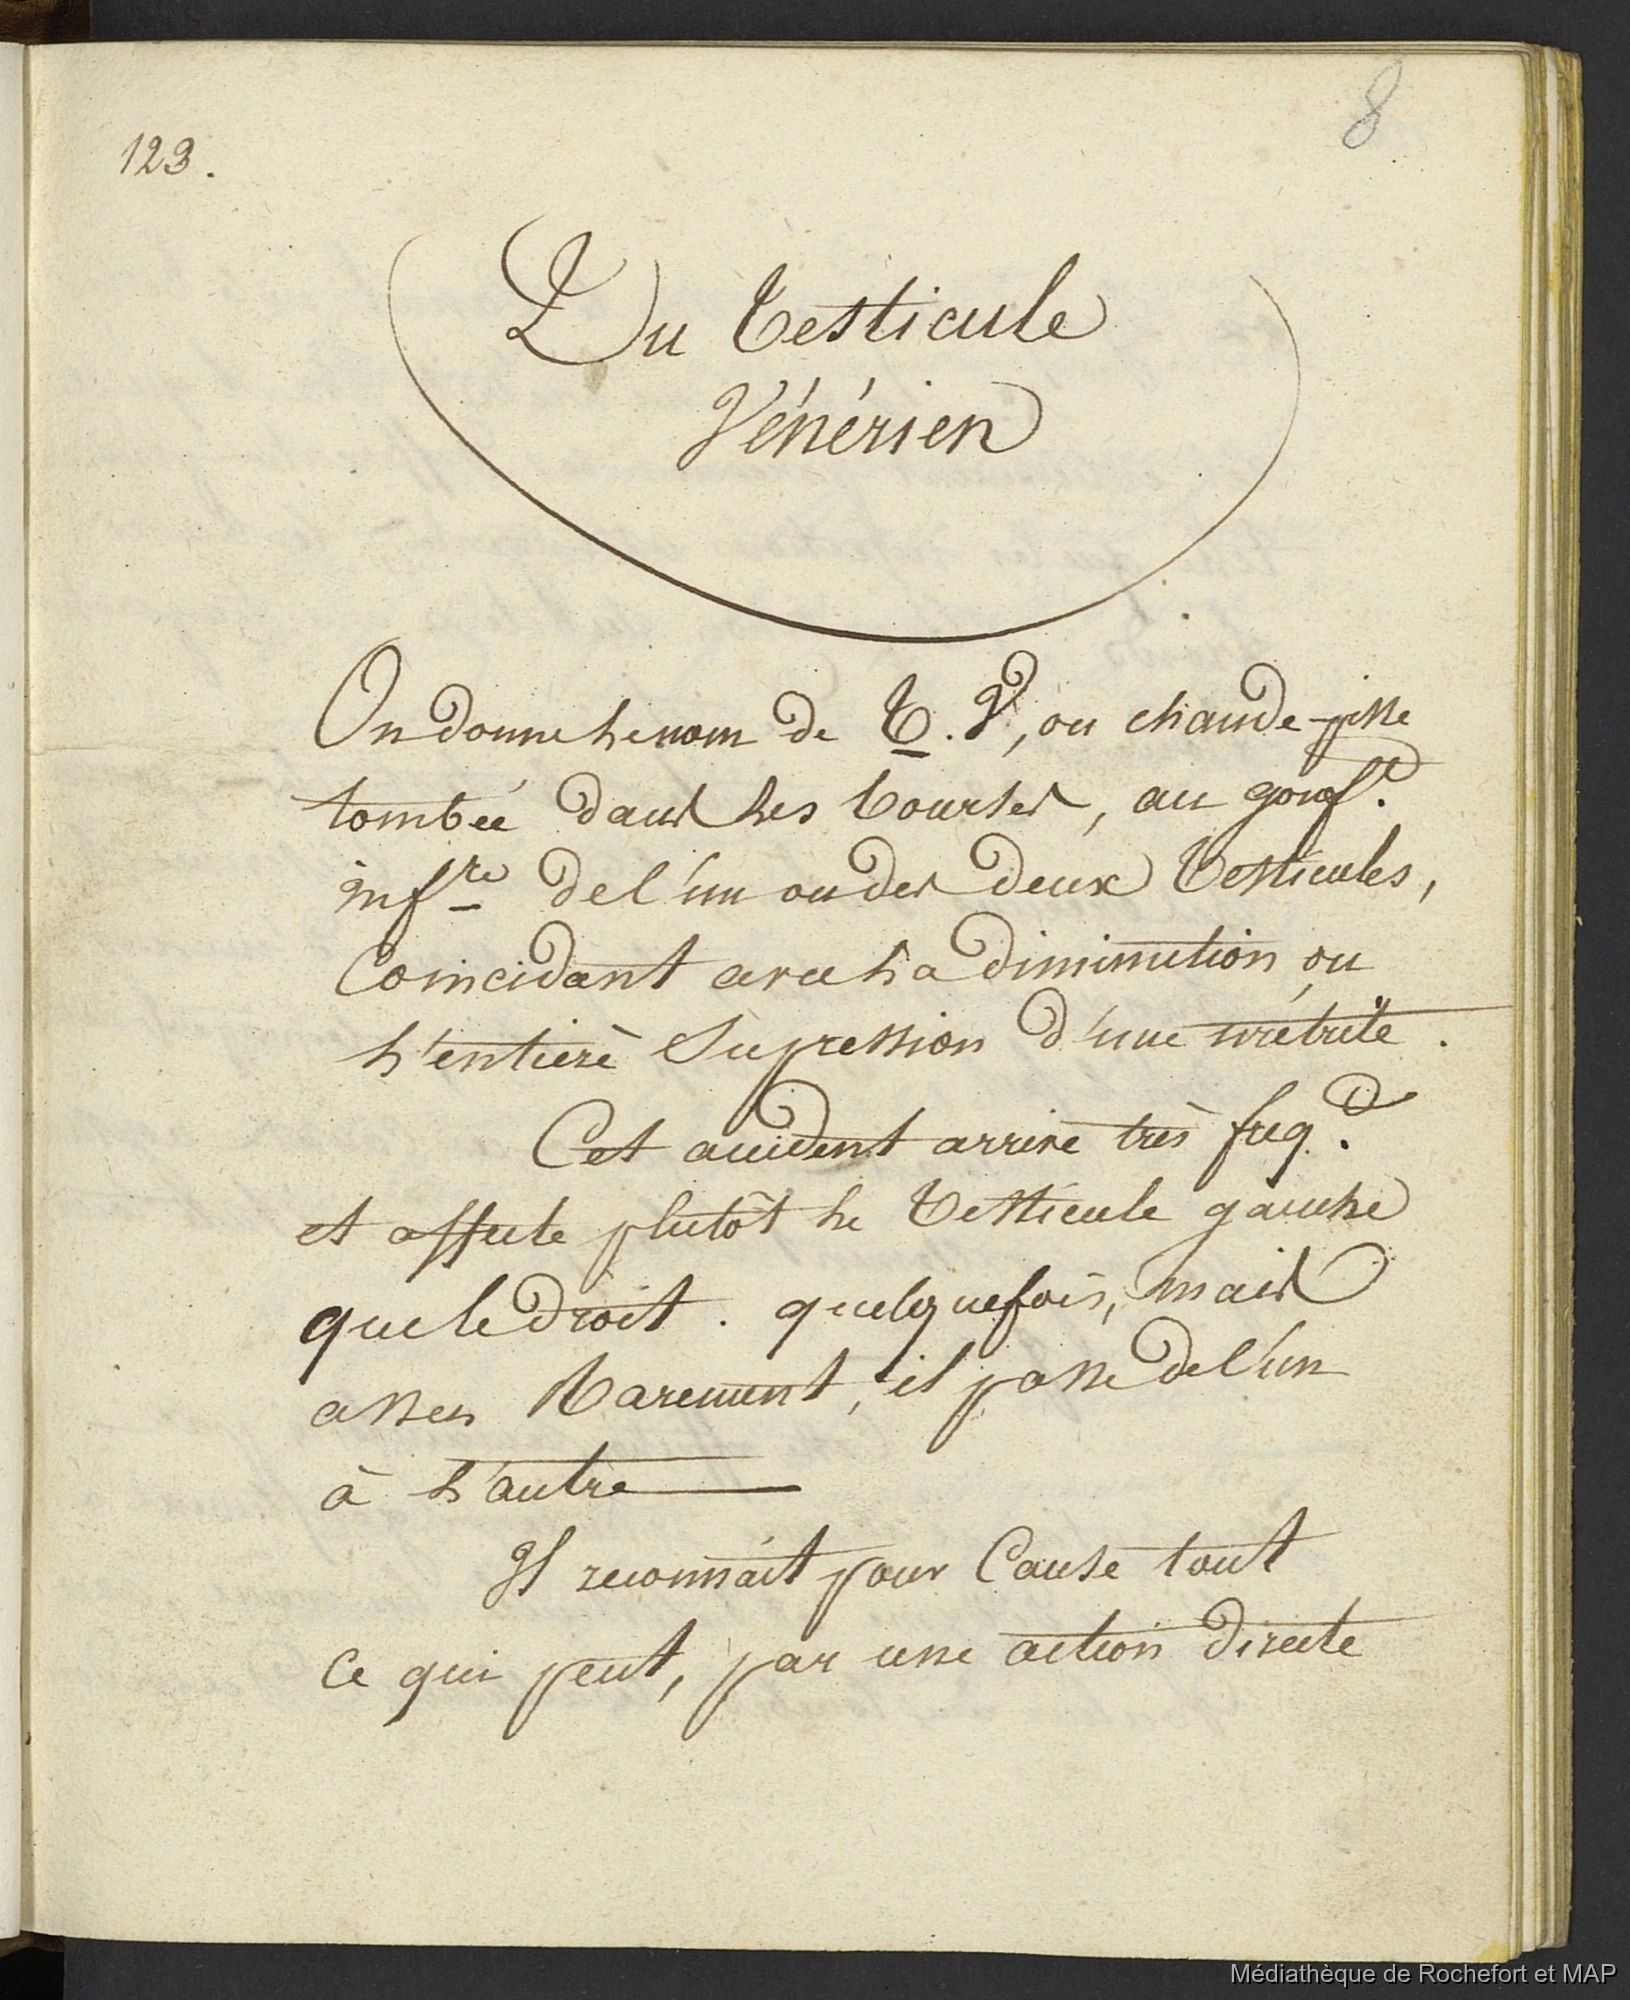 8
123.
Du Testicule
Vénérien
On donne le nom de T. V, ou chaude-pisse
tombée dans les bourses, au gonf.t
inf.re de l'un ou des deux Testicules,
Coincidant avec la diminution ou
l'entière Supression d'une urétrite.
Cet accident arrive très freq.t
et affecte plutôt le Testicule gauche
que le droit. quelquefois, mais
assez Rarement, il passe de l'un
à l'autre
Il reconnait pour Cause tout
ce qui peut, par une action directe
Médiathèque de Rochefort et MAP